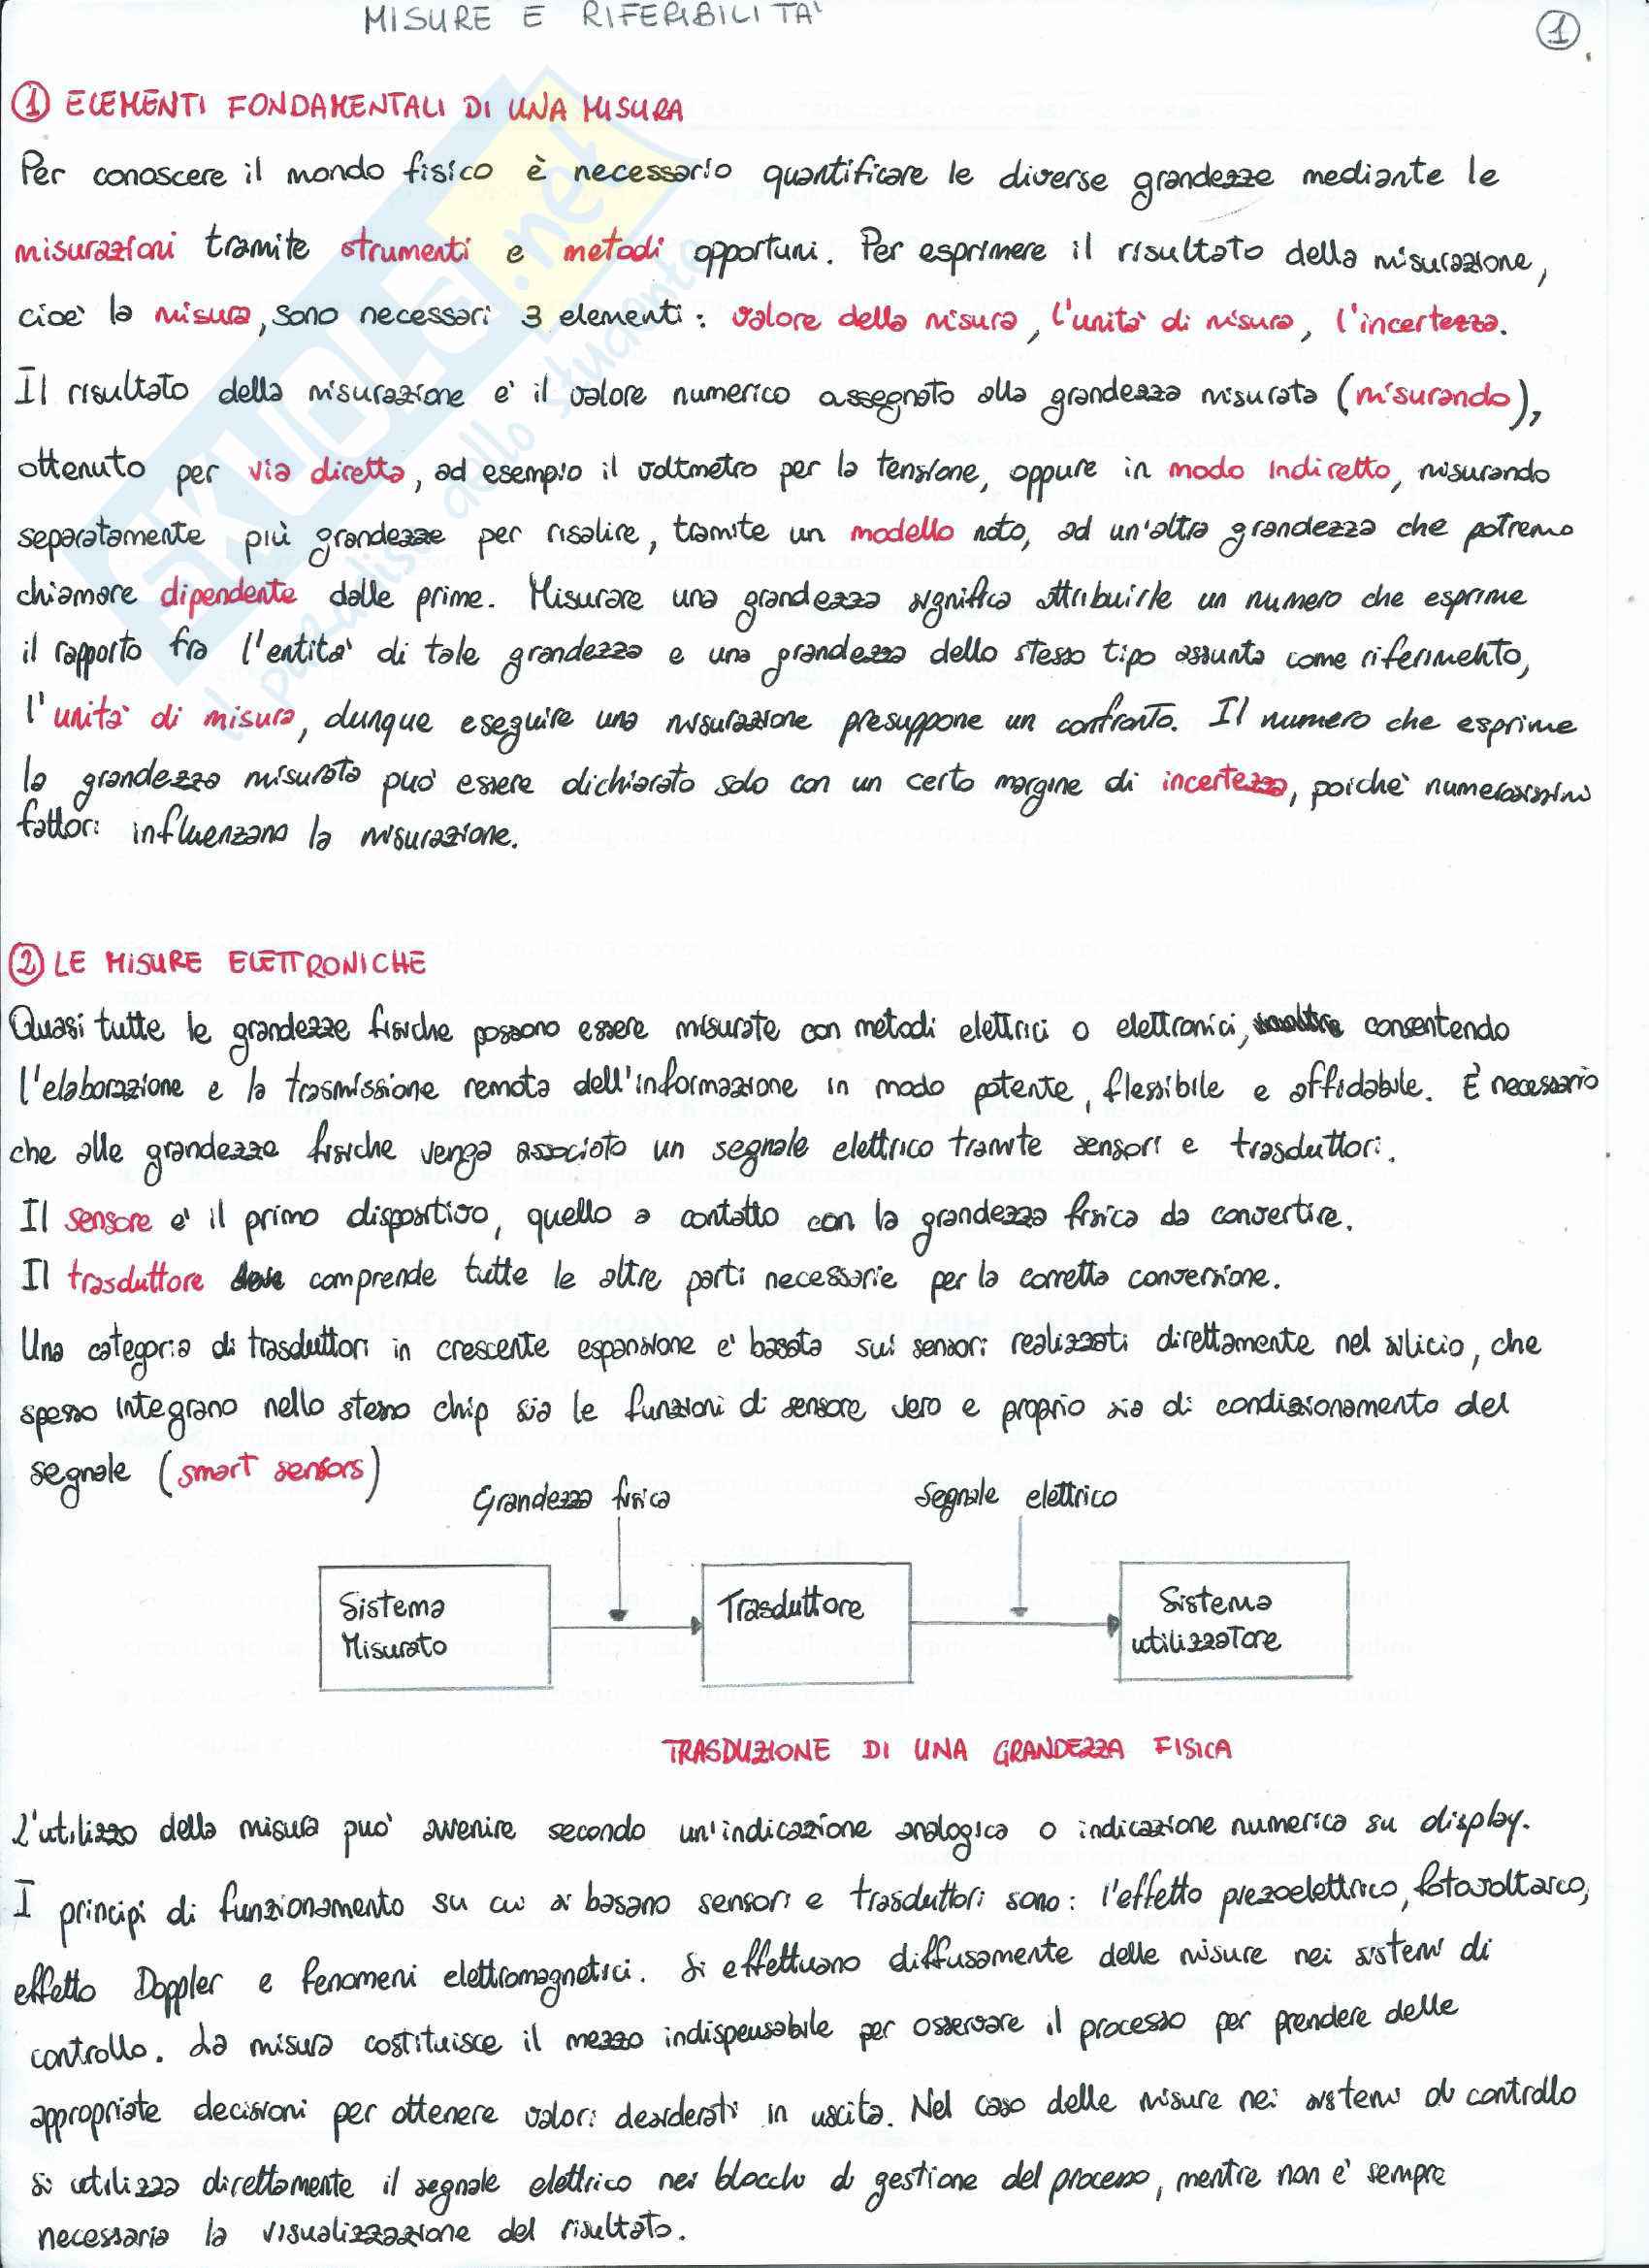 MISURE E RIFERIBILITA'
1
1 ELEMENTI FONDAMENTALI DI UNA MISURA
Per conoscere il mondo fisico è necessario quantificare le diverse grandezze mediante le
misurazioni tramite strumenti e metodi opportuni. Per esprimere il risultato della misurazione,
cioè la misura, sono necessari 3 elementi: valore della misura, l'unità di misura, l'incertezza.
Il risultato della misurazione e' il valore numerico assegnato alla grandezza misurata (misurando),
ottenuto per via diretta, ad esempio il voltmetro per la tensione, oppure in modo indiretto, misurando
separatamente più grandezze per risalire, tramite un modello noto, ad un'altra grandezza che potremo
chiamare dipendente dalle prime. Misurare una grandezza significa attribuirle un numero che esprime
il rapporto fra l'entita' di tale grandezza e una grandezza dello stesso tipo assunta come riferimento,
l'unita' di misura, dunque eseguire una misurazione presuppone un confronto. Il numero che esprime
la grandezza misurata può essere dichiarato solo con un certo margine di incertezza, poichè numerosissimi
fattori influenzano la misurazione.
2 LE MISURE ELETTRONICHE
Quasi tutte le grandezze fisiche possono essere misurate con metodi elettrici o elettronici, consentendo
l'elaborazione e la trasmissione remota dell'informazione in modo potente, flessibile e affidabile. È necessario
che alle grandezze fisiche venga associato un segnale elettrico tramite sensori e trasduttori.
Il sensore e' il primo dispositivo, quello a contatto con la grandezza fisica da convertire.
Il trasduttore comprende tutte le altre parti necessarie per la corretta conversione.
Una categoria di trasduttori in crescente espansione e' basata sui sensori realizzati direttamente nel silicio, che
spesso integrano nello stesso chip sia le funzioni di sensore vero e proprio sia di condizionamento del
segnale (smart sensors)
Grandezza fisica Segnale elettrico
Sistema Misurato
Trasduttore
Sistema utilizzatore
TRASDUZIONE DI UNA GRANDEZZA FISICA
L'utilizzo della misura può avvenire secondo un'indicazione analogica o indicazione numerica su display.
I principi di funzionamento su cui si basano sensori e trasduttori sono: l'effetto piezoelettrico, fotovoltaico,
effetto Doppler e fenomeni elettromagnetici. Si effettuano diffusamente delle misure nei sistemi di
controllo. La misura costituisce il mezzo indispensabile per osservare il processo per prendere delle
appropriate decisioni per ottenere valori desiderati in uscita. Nel caso delle misure nei sistemi di controllo
si utilizza direttamente il segnale elettrico nei blocchi di gestione del processo, mentre non e' sempre
necessaria la visualizzazione del risultato.
SKUOLA.net
il paradiso dello studente